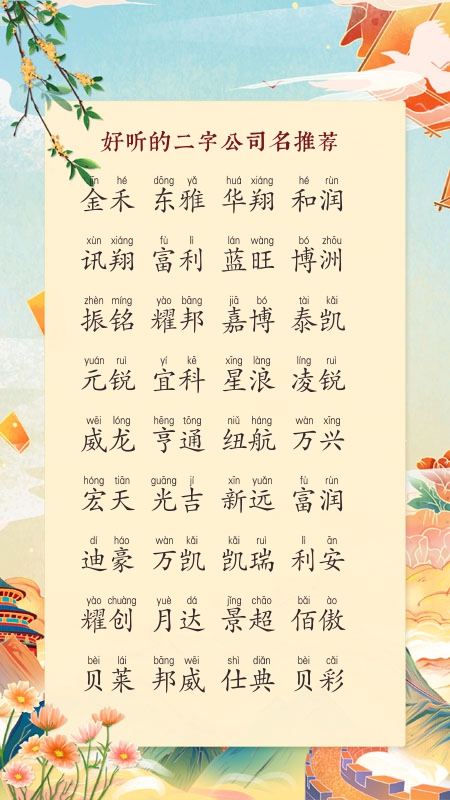 好听的二字公司名推荐
jīn hé dōng yǎ huá xiáng hé rùn
金禾 东雅 华翔 和润
xùn xiáng fù lì lán wàng bó zhōu
讯翔 富利 蓝旺 博洲
zhèn míng yào bāng jiā bó tài kǎi
振铭 耀邦 嘉博 泰凯
yuán ruì yí kē xīng làng líng ruì
元锐 宜科 星浪 凌锐
wēi lóng hēng tōng niǔ háng wàn xīng
威龙 亨通 纽航 万兴
hóng tiān guāng jí xīn yuǎn fù rùn
宏天 光吉 新远 富润
dí háo wàn kǎi kǎi ruì lì ān
迪豪 万凯 凯瑞 利安
yào chuàng yuè dá jǐng chāo bǎi ào
耀创 月达 景超 佰傲
bèi lái bāng wēi shì diǎn bèi cǎi
贝莱 邦威 仕典 贝彩